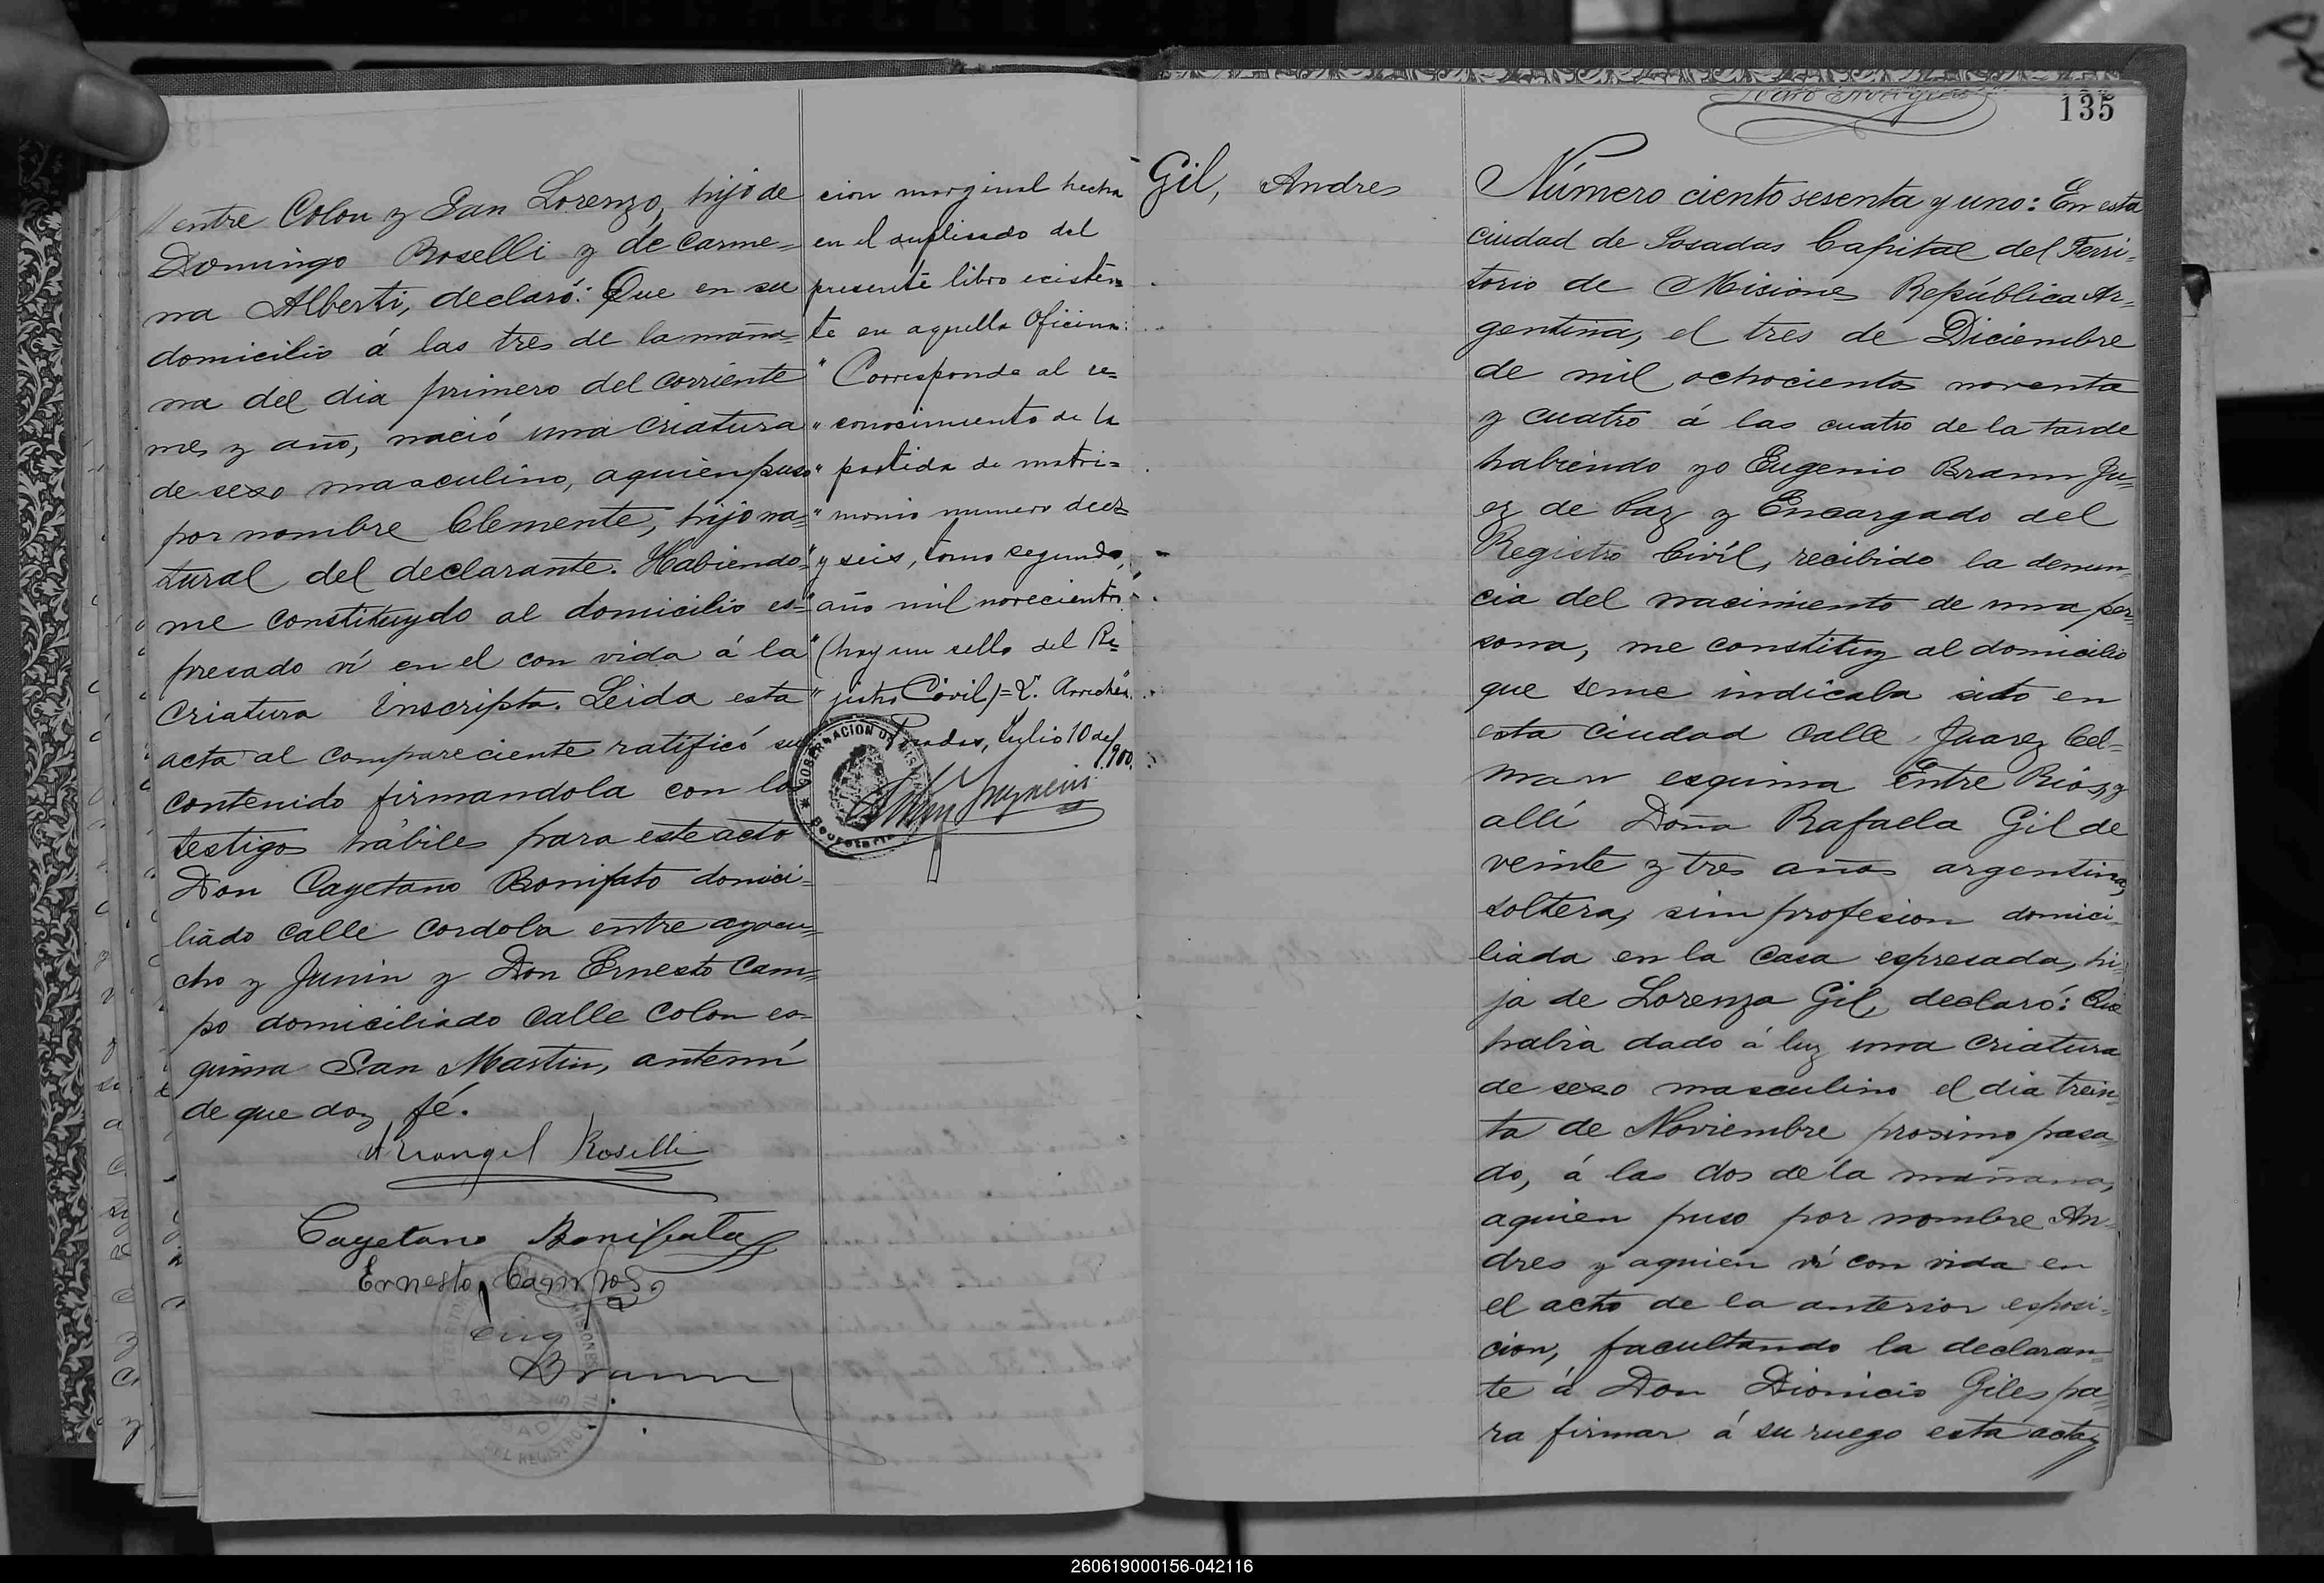 entre Colon y San Lorenzo, hijo de
Domingo Roselli y de Carme=
na Alberti, declaró: Que en su
domicilio á las tres de la maña=
na del dia primero del corriente
mes y año, nació una criatura
de sexo masculino, aquien puso
por nombre Clemente, hijo na=
tural del declarante. Habiendo=
me constituydo al domicilio es=
presado ví en el con vida á la
Criatura Inscripta. Leida esta
acta al compareciente ratificó su
contenido firmandola con los
testigos hábiles para este acto
Don Cayetano Bonifato domici=
liado calle Cordoba entre ayacu=
cho y Junin y Don Ernesto Cam=
po domiciliado Calle Colon es=
quina San Martin, antemí
de que doy fé.
Arcangel Roselli
Cayetano Bonifato
Ernesto Campos
Eug
Braun
cion marginal hecha
en el duplicado del
presente libro ecisten=
te en aquella Oficina:
" Corresponde al re=
" conosimiento de la
" partida de matri=
" monio numero diez=
" y seis, tomo segundo,
" año mil novecientos.
" (hay un sello del Re=
" jistro Civil)=
Posadas, Julio 10 de/900.
GOBERNACION DE MISIONES
Secretaria
135
Gil, Andres
Número ciento sesenta y uno: En esta
ciudad de Posadas Capital del Terri=
torio de Misiones República Ar=
gentina, el tres de Diciembre
de mil ochocientos noventa
y cuatro á las cuatro de la tarde
habiendo yo Eugenio Braun Ju=
ez de Paz y Encargado del
Registro Civíl, recibido la denun=
cia del nacimiento de una per=
sona, me constituy al domicilio
que seme indicaba sito en
esta ciudad calle Juarez Cel=
man esquina Entre Rios, y
allí Doña Rafaela Gil de
veinte y tres años argentina,
soltera, sin profesion domici=
liada en la casa espresada, hi=
ja de Lorenza Gil, declaró: Que
habia dado á luz una criatura
de sexo masculino el dia trein=
ta de Noviembre prosimo pasa=
do, á las dos de la mañana,
aquien puso por nombre An=
dres y aquien ví con vida en
el acto de la anterior esposi=
cion, facultando la declaran=
te á Don Dionicio Giles pa=
ra firmar á su ruego esta acta y
260619000156-042116